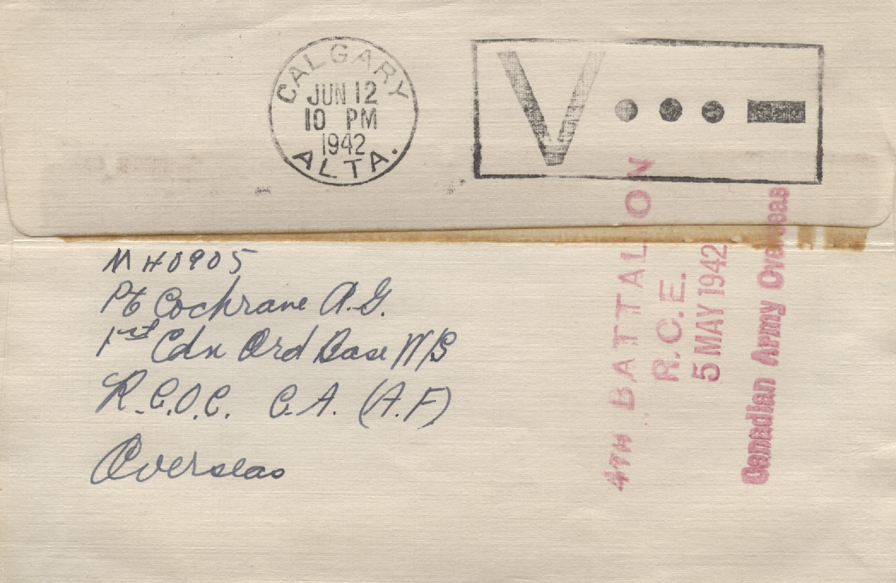 CALGARY
JUN 12
10 PM
1942
ALTA.
V
M H0905
Pt Cochrane A.G.
1st Cdn Ord Base W/S
R.C.O.C. C.A. (A.F)
Overseas
4TH BATTALION
R.C.E.
5 MAY 1942
Canadian Army Overseas